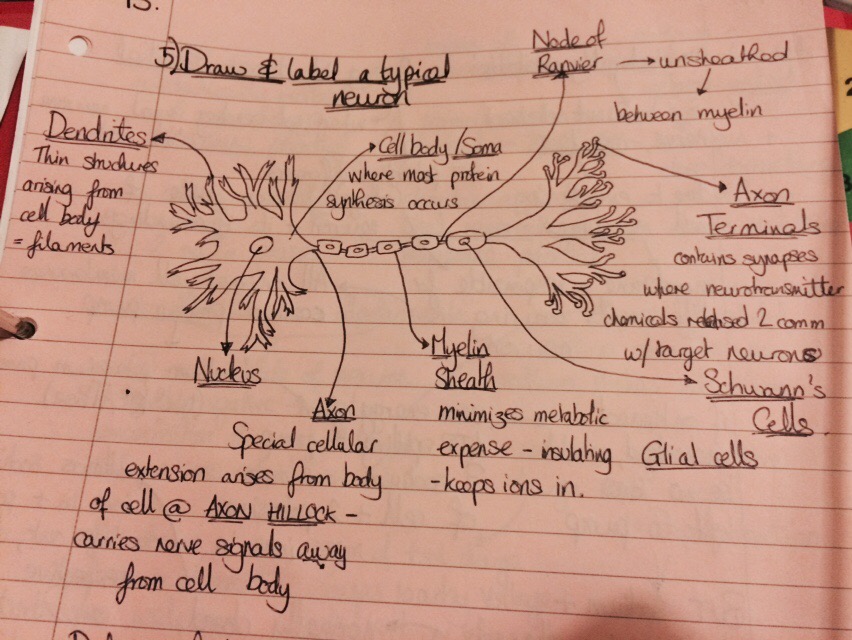 13.
5) Draw & label a typical
neuron
Node of
Ranvier → unsheathed
between myelin
Dendrites
Thin structures
arising from
cell body
= filaments
Cell body/Soma
where most protein
synthesis occurs
Axon
Terminals
contains synapses
where neurotransmitter
chemicals released 2 comm
w/ target neurons
Nucleus
Myelin
Sheath
minimizes metabolic
expense - insulating
- keops ions in.
Schwann's
Cells
Glial cells
Axon
Special cellular
extension arises from body
of cell @ AXON HILLOCK -
carries nerve signals away
from cell body